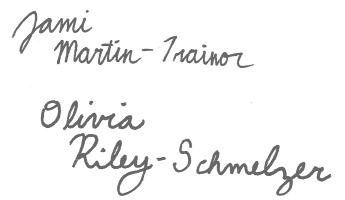 Jami
Martin-Trainor
Olivia
Riley-Schmelzer